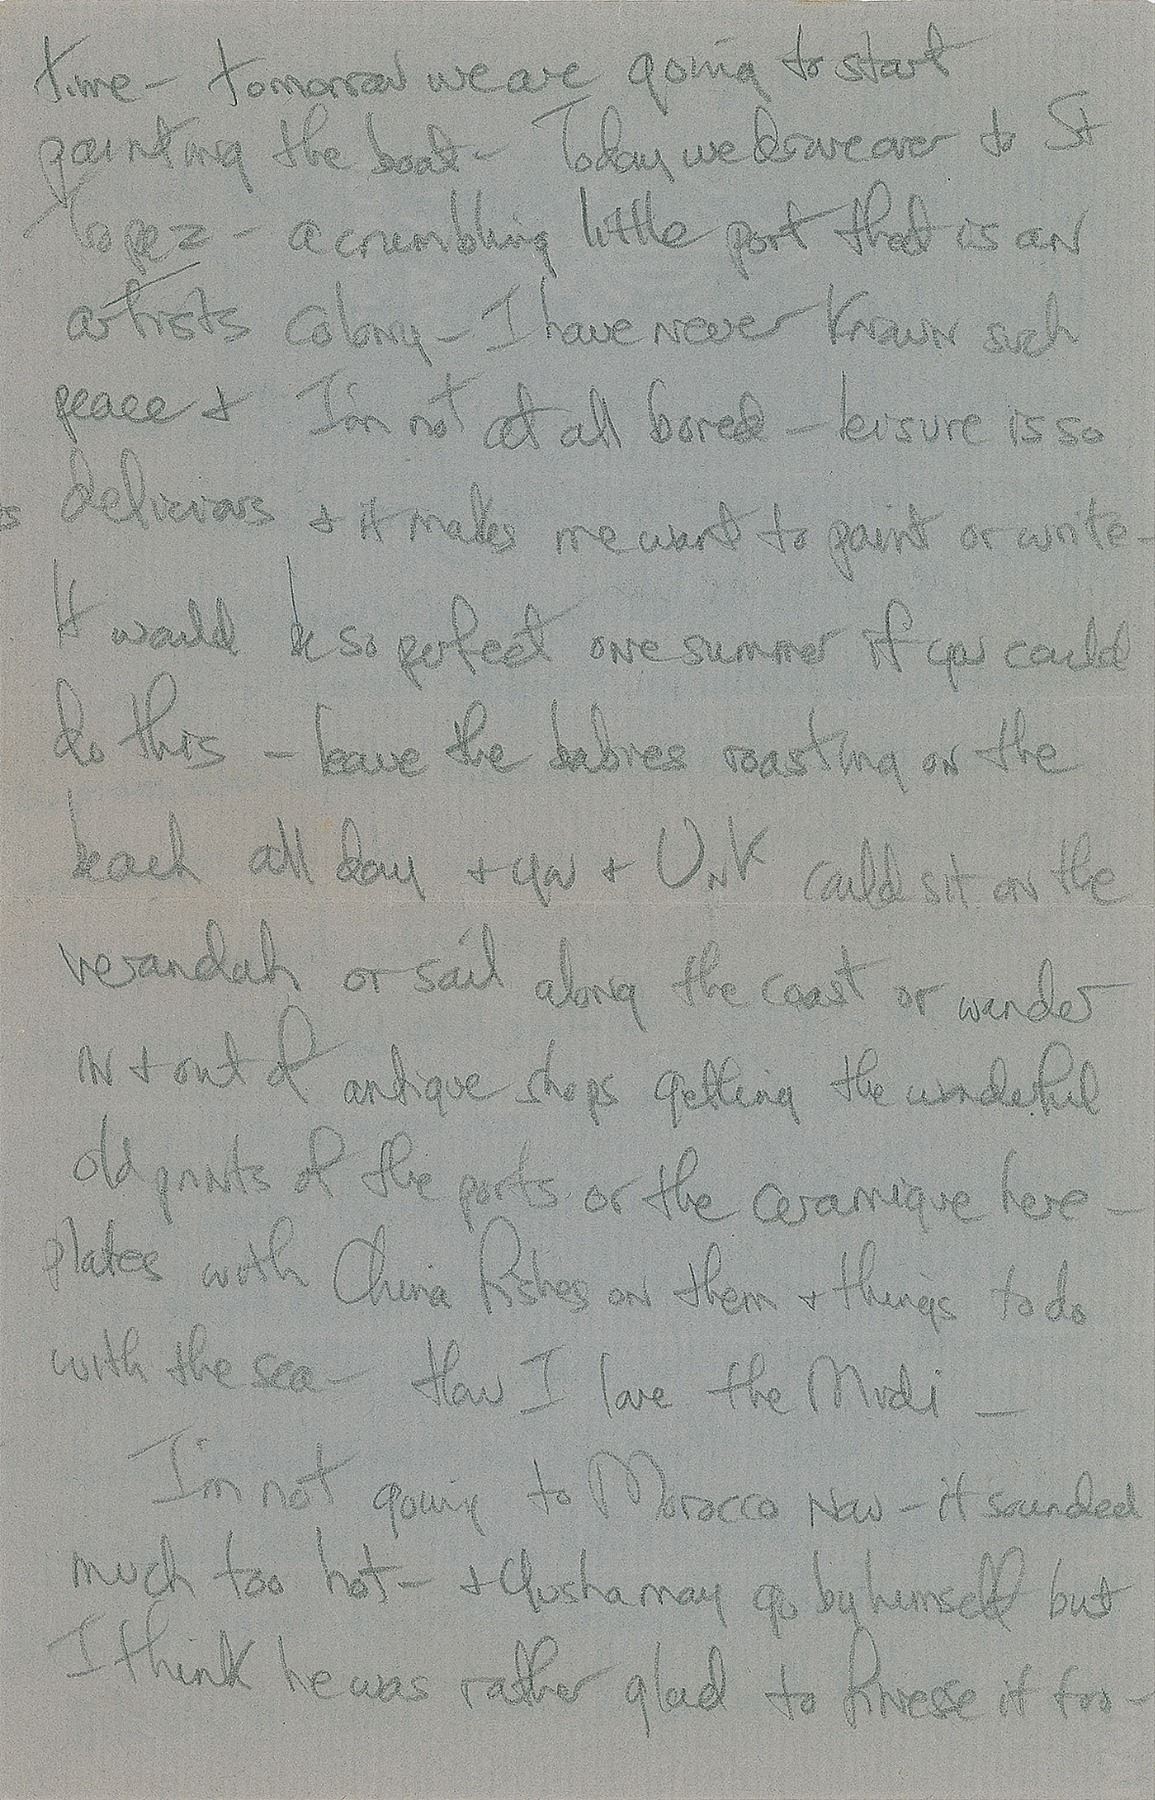 time – tomorrow we are going to start
painting the boat – Today we drove over to St
Tropez – a crumbling little port that is an
artists colony – I have never known such
peace + I'm not at all bored – leisure is so
delicious + it makes me want to paint or write –
It would be so perfect one summer if you could
do this – leave the babies roasting on the
beach all day + you + Unk could sit on the
verandah or sail along the coast or wander
in + out of antique shops getting the wonderful
old prints of the ports or the ceramique here –
plates with China fishes on them + things to do
with the sea – How I love the Midi –
I'm not going to Morocco now – it sounded
much too hot – + Yusha may go by himself but
I think he was rather glad to finesse it too –